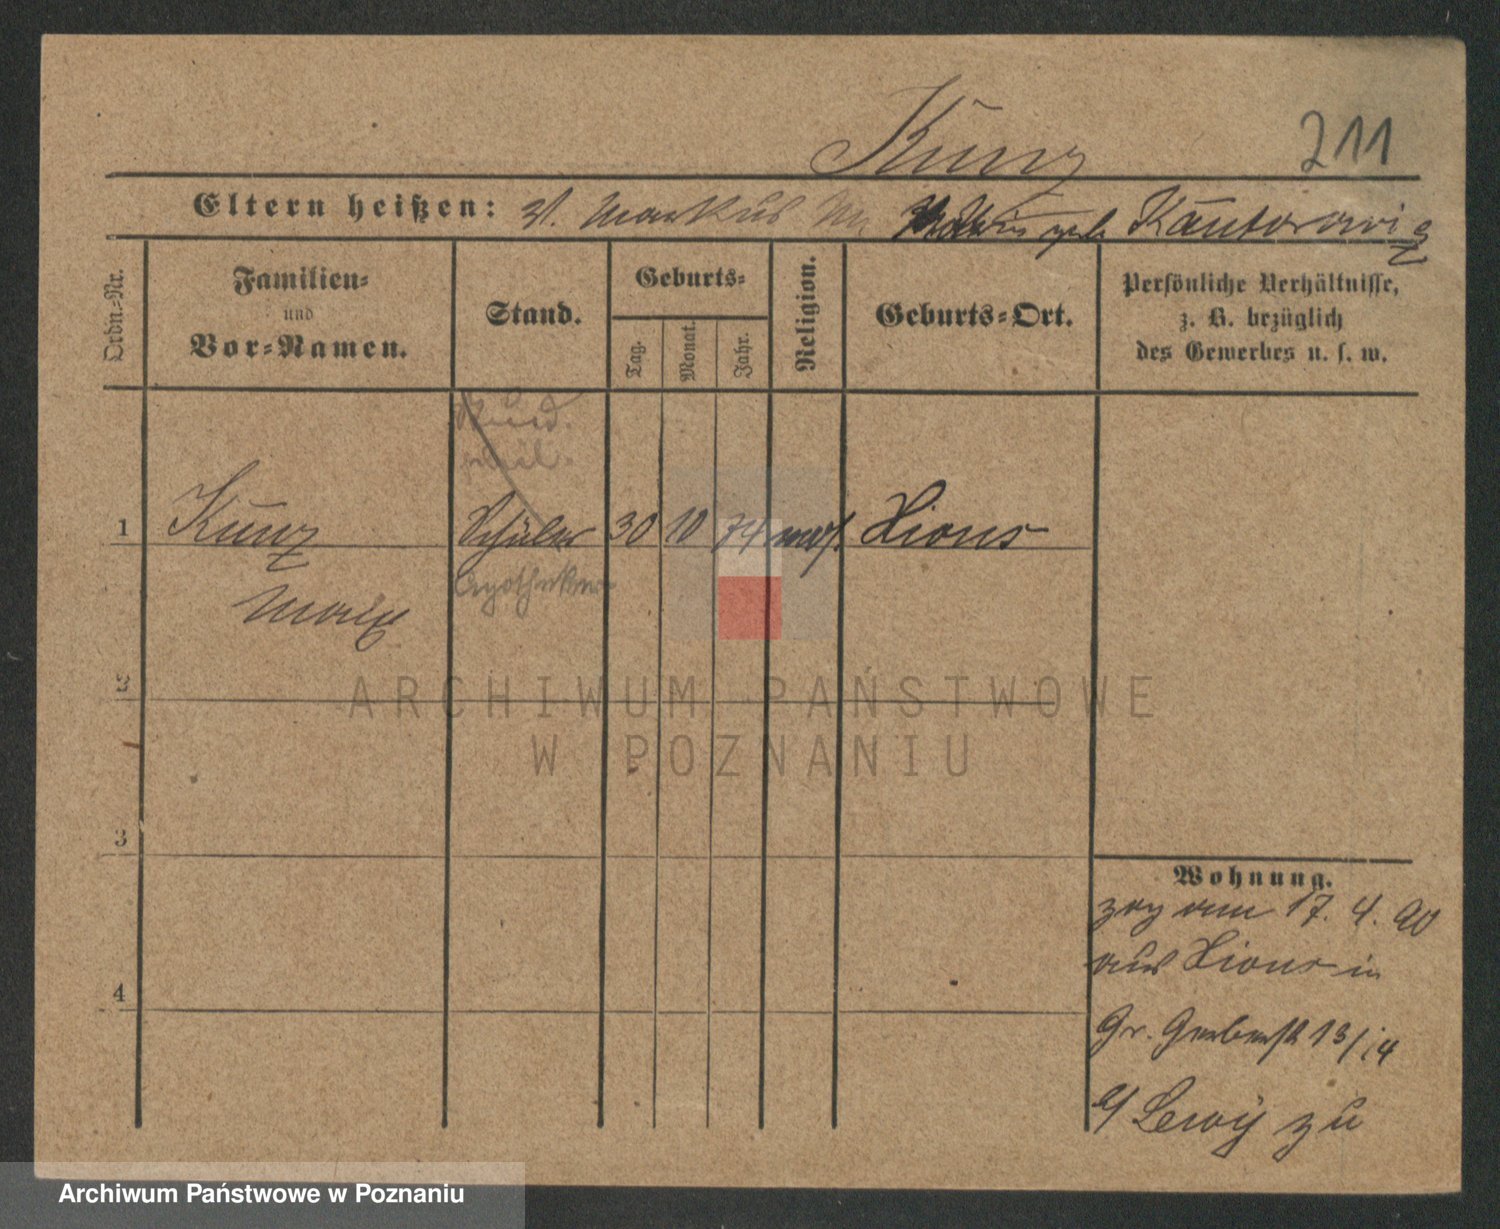 Kunz 211
Eltern heißen: V. Markus M. geb. Kantorowicz
Ordn.-Nr.
Familien-
und
Vor-Namen.
Stand.
Geburts-
Tag.
Monat.
Jahr.
Religion.
Geburts-Ort.
Persönliche Verhältnisse,
z. B. bezüglich
des Gewerbes u. s. w.
1 Kunz Schüler 30 10 74 mos. Xions
Max Apotheker
2
3
4
Wohnung.
zog am 17. 4. 90
aus Xions in
Gr. Gerberstr 13/14
b/ Lewy zu
ARCHIWUM PAŃSTWOWE
W POZNANIU
Archiwum Państwowe w Poznaniu